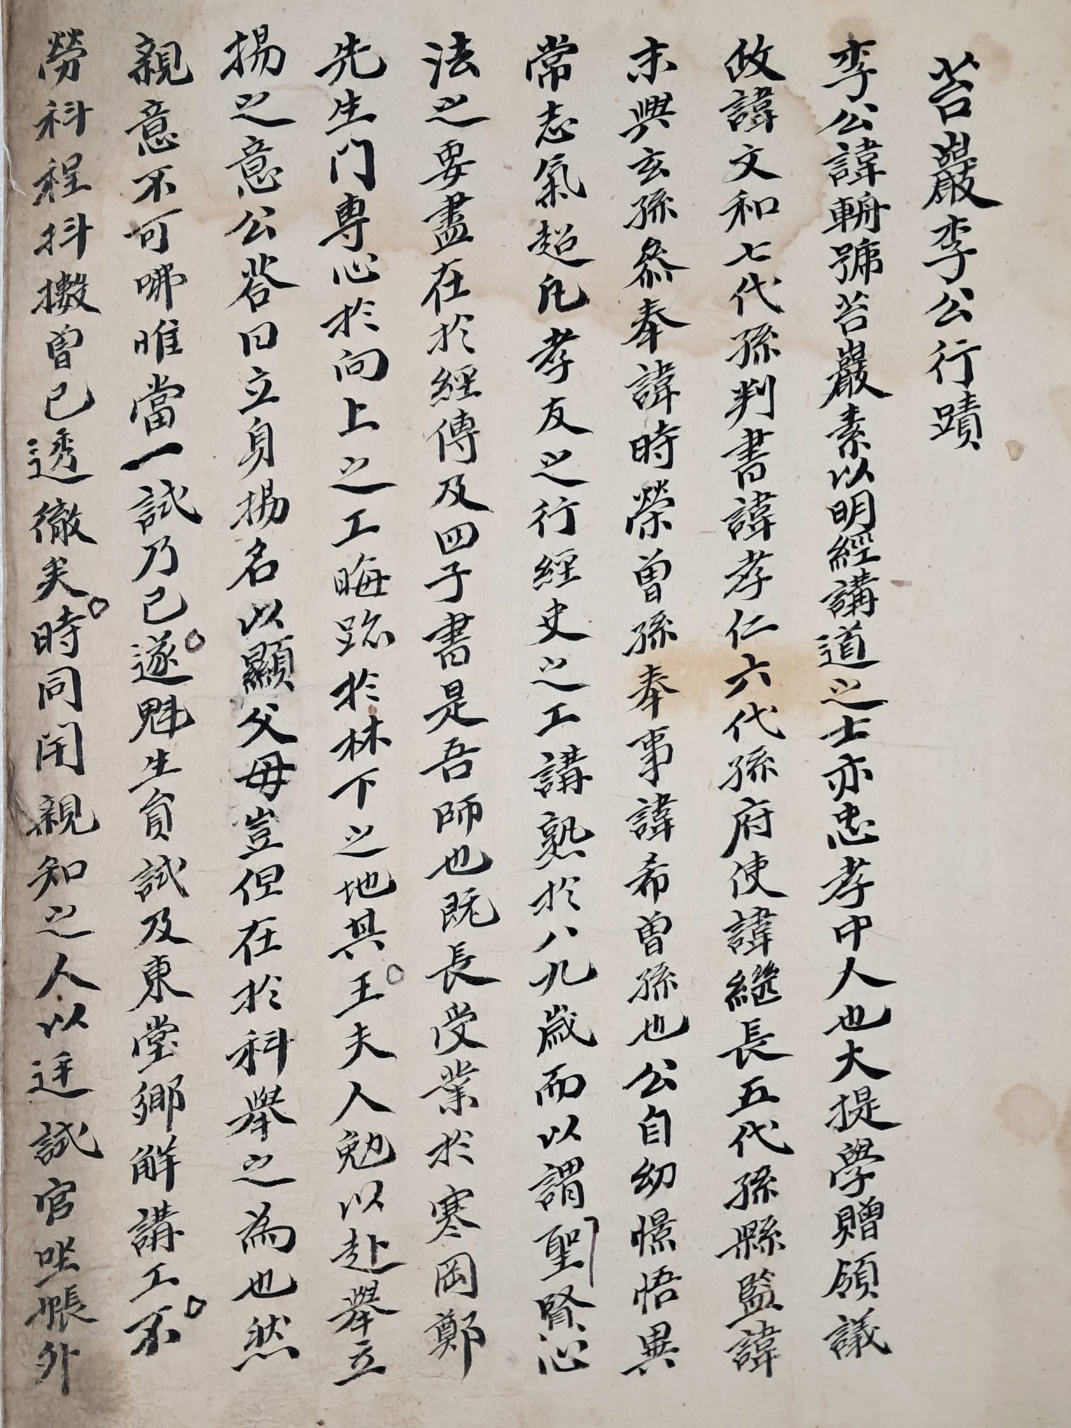 苔巖李公行蹟
李公諱輈號苔巖素以明經講道之士亦忠孝中人也大提學贈領議
政諱文和七代孫判書諱孝仁六代孫府使諱繼長五代孫縣監諱
末興玄孫叅奉諱時榮曾孫奉事諱希曾孫也公自幼憬悟異
常志氣超凡孝友之行經史之工講熟於八九歲而以謂聖賢心
法之要盡在於經傳及四子書是吾師也旣長受業於寒岡鄭
先生门專心於向上之工晦跡於林下之地其王夫人勉以赴擧立
揚之意公答曰立身揚名以顯父母豈但在於科擧之為也然
親意不可咈唯當一試乃已遂魁生負試及東堂鄕解講工不
勞科程抖擻曾已透徹矣時同閈親知之人以逆試官坐帳外